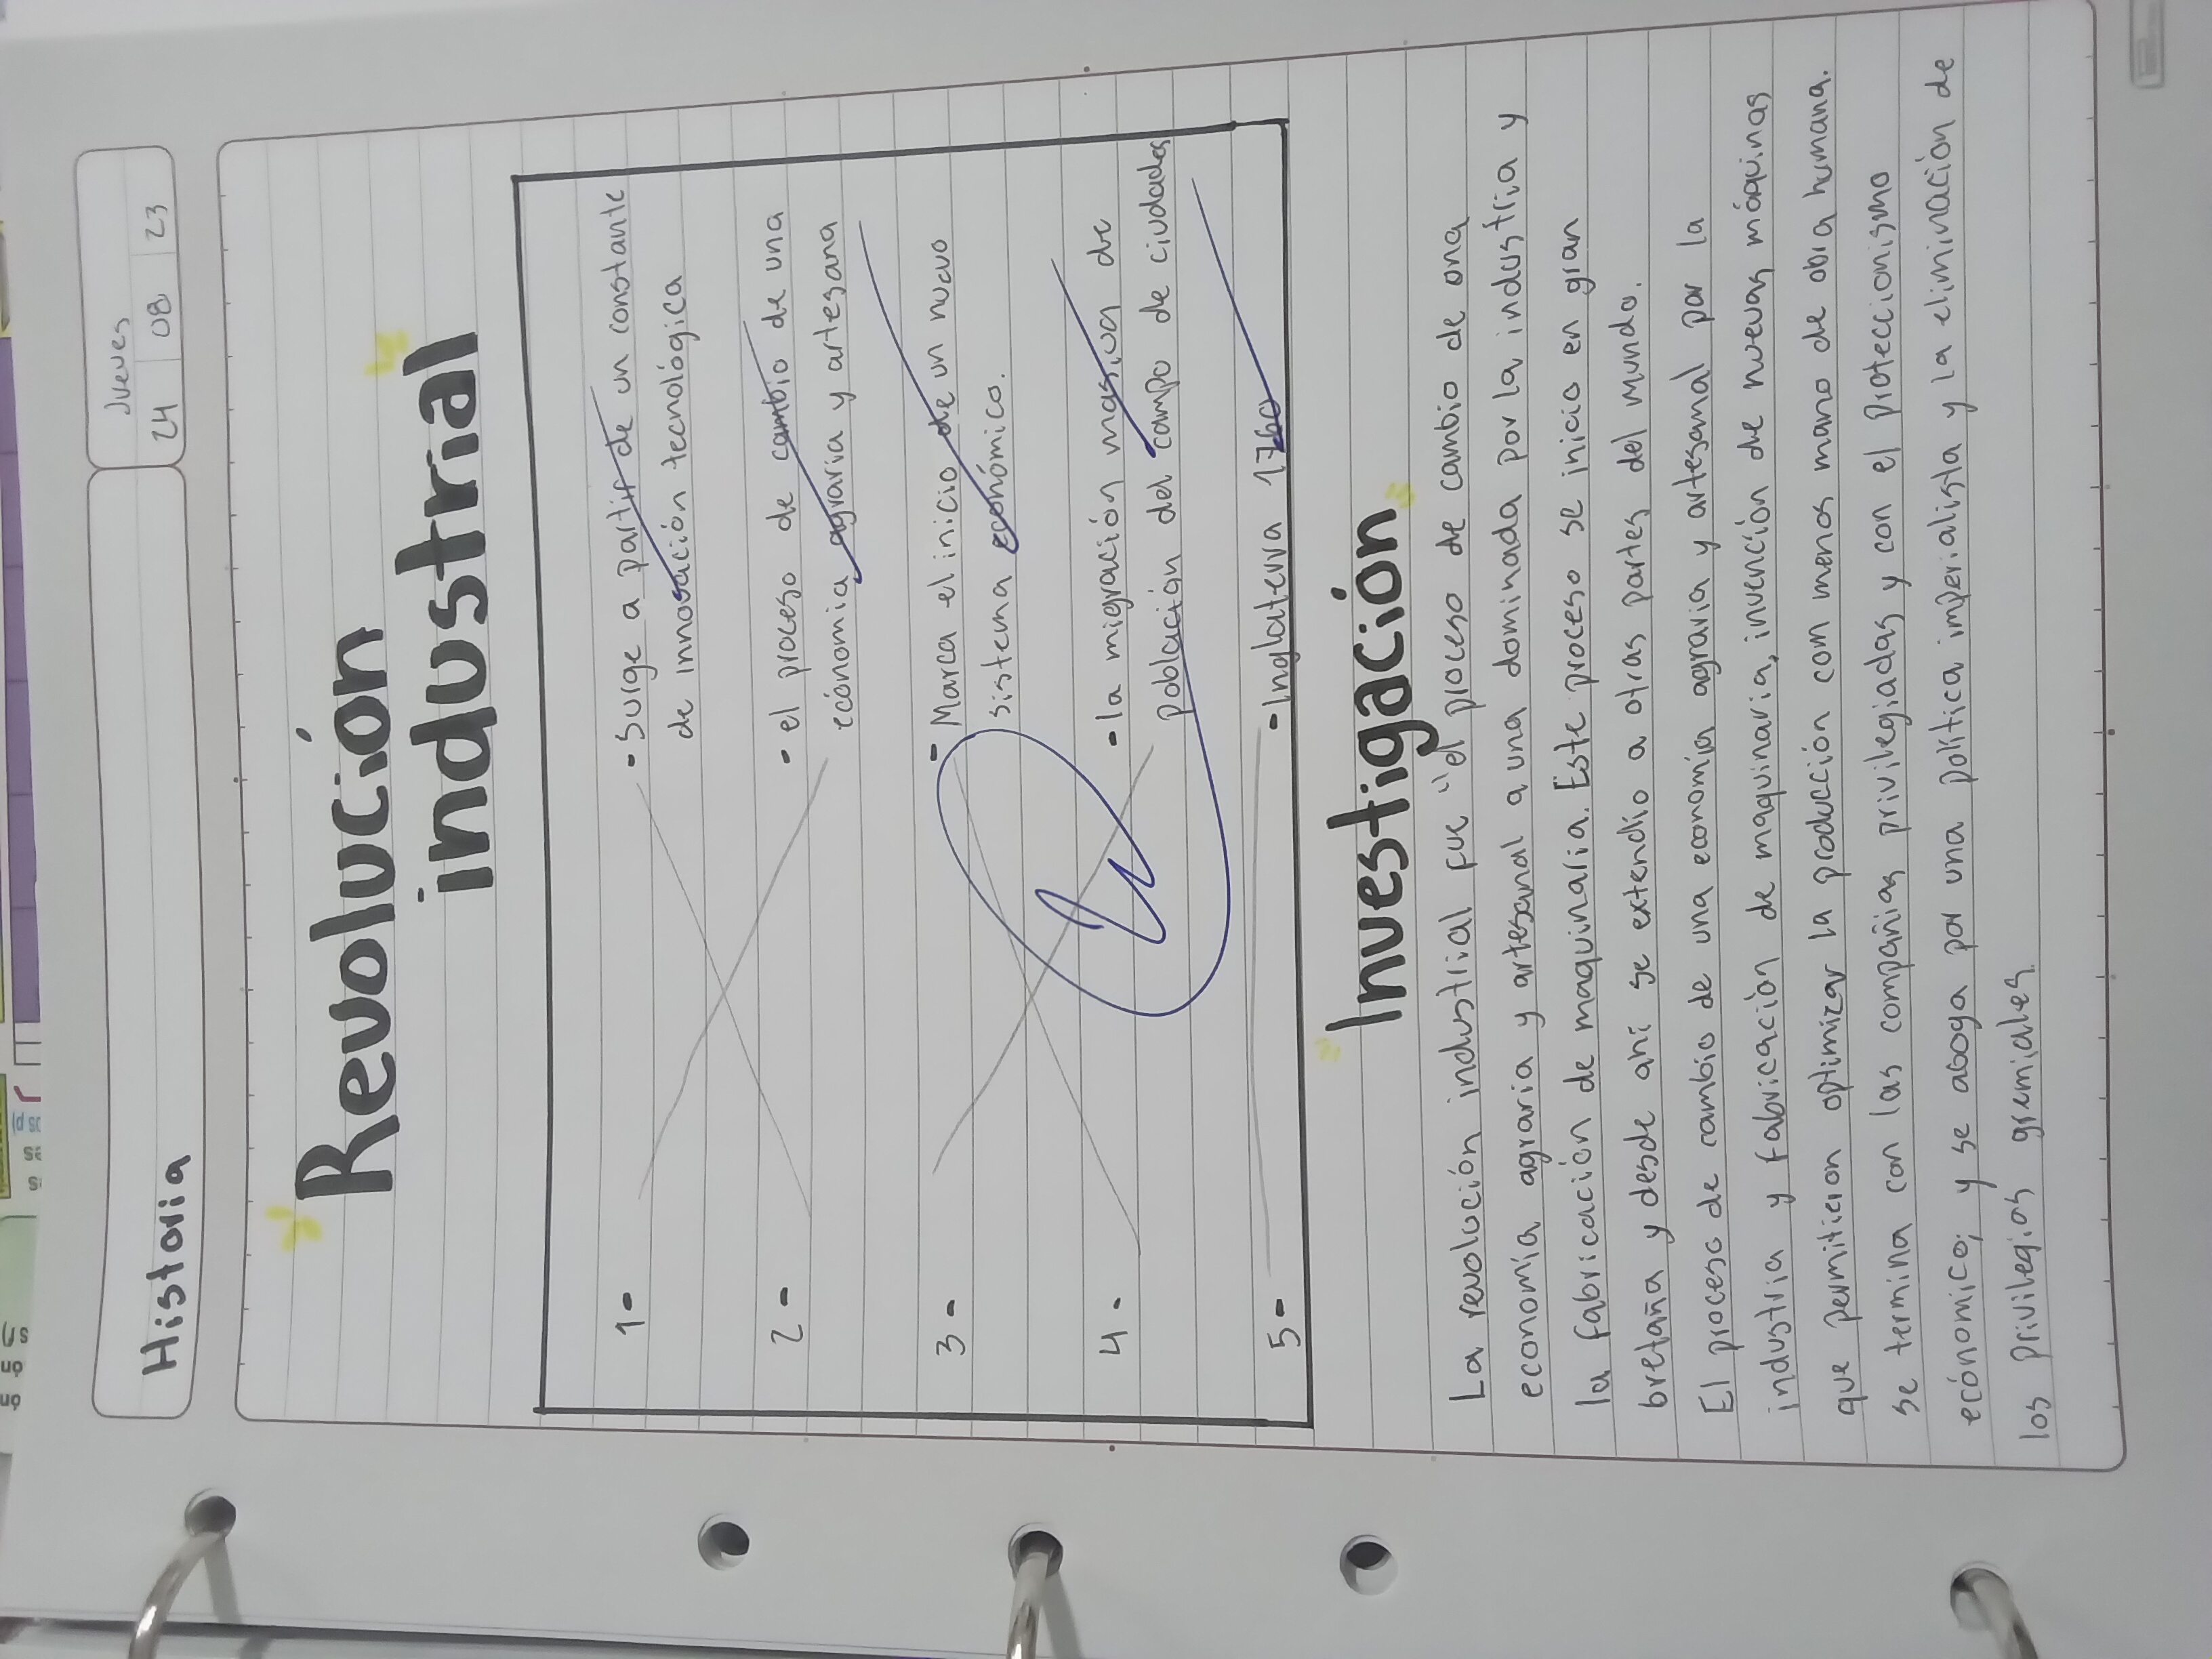 Historia
Jueves
24 08 23
Revolución
industrial
1- - Surge a partir de un constante
de innovación tecnológica
2- - el proceso de cambio de una
ecónomia agraria y artesana
3- - Marca el inicio de un nuevo
sistema económico.
4- - la migración masiva de
población del campo de ciudades
5- - Inglaterra 1760
Investigación
La revolución industrial fue "el proceso de cambio de una
economía agraria y artesanal a una dominada por la industria y
la fabricación de maquinaria. Este proceso se inicio en gran
bretaña y desde ahí se extendio a otras partes del mundo.
El proceso de cambio de una economía agraria y artesanal por la
industria y fabricación de maquinaria, invención de nuevas máquinas
que permitieron optimizar la producción con menos mano de obra humana.
se termina con las compañias privilegiadas y con el proteccionismo
ecónomico; y se aboga por una política imperialista y la eliminación de
los privilegios gremiales.